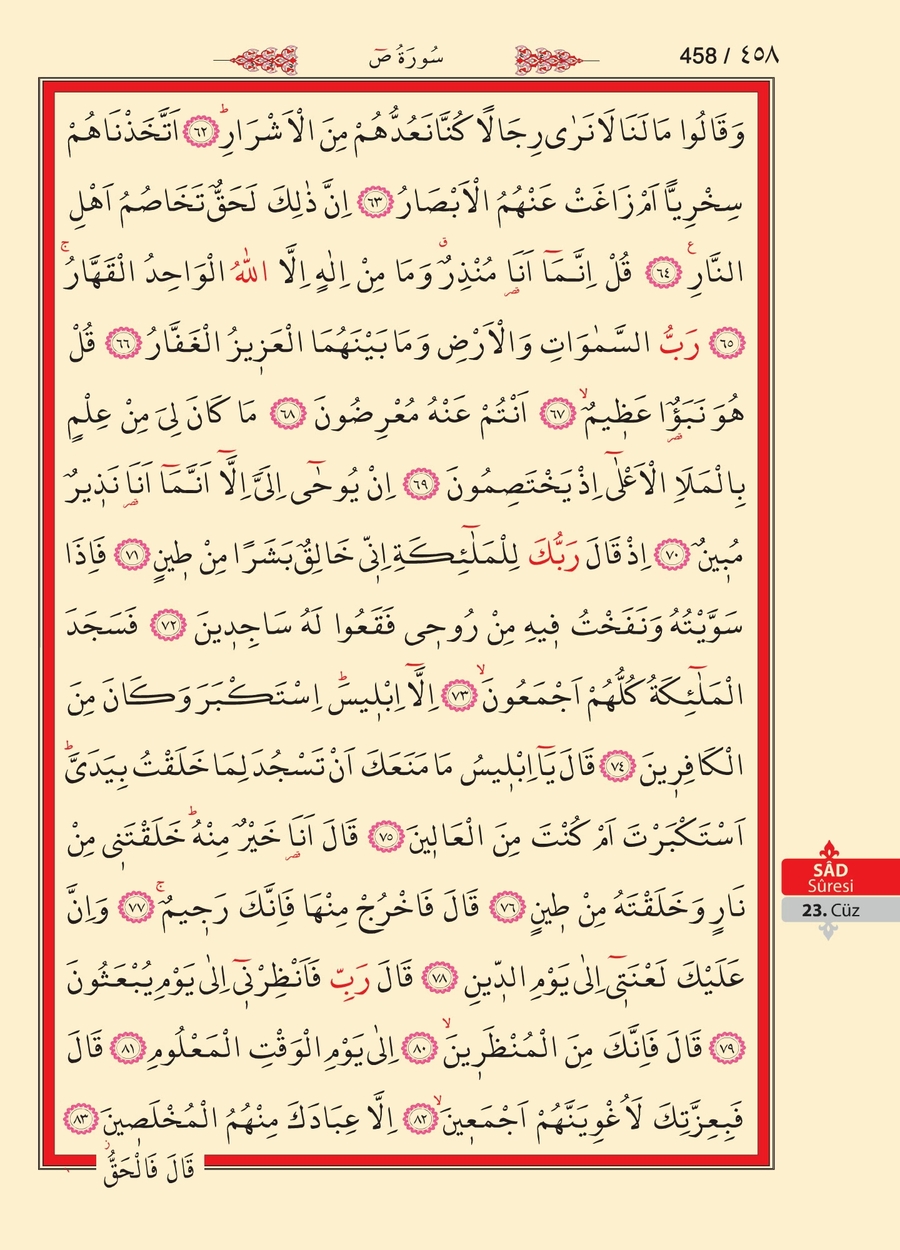 458 / ٤٥٨
سُورَةُ صٓ
وَقَالُوا مَا لَنَا لَا نَرٰى رِجَالًا كُنَّا نَعُدُّهُمْ مِنَ الْاَشْرَارِۜ ﴿٦٢﴾ اَتَّخَذْنَاهُمْ
سِخْرِيًّا اَمْ زَاغَتْ عَنْهُمُ الْاَبْصَارُ ﴿٦٣﴾ اِنَّ ذٰلِكَ لَحَقٌّ تَخَاصُمُ اَهْلِ
النَّارِ ﴿٦٤﴾ قُلْ اِنَّمَٓا اَنَا۬ مُنْذِرٌ وَمَا مِنْ اِلٰهٍ اِلَّا اللّٰهُ الْوَاحِدُ الْقَهَّارُۚ
﴿٦٥﴾ رَبُّ السَّمٰوَاتِ وَالْاَرْضِ وَمَا بَيْنَهُمَا الْعَز۪يزُ الْغَفَّارُ ﴿٦٦﴾ قُلْ
هُوَ نَبَؤٌ۬ا عَظ۪يمٌۙ ﴿٦٧﴾ اَنْتُمْ عَنْهُ مُعْرِضُونَ ﴿٦٨﴾ مَا كَانَ لِيَ مِنْ عِلْمٍ
بِالْمَلَأِ الْاَعْلٰٓى اِذْ يَخْتَصِمُونَ ﴿٦٩﴾ اِنْ يُوحٰٓى اِلَيَّ اِلَّٓا اَنَّمَٓا اَنَا۬ نَذ۪يرٌ
مُب۪ينٌ ﴿٧٠﴾ اِذْ قَالَ رَبُّكَ لِلْمَلٰٓئِكَةِ اِنّ۪ي خَالِقٌ بَشَرًا مِنْ ط۪ينٍ ﴿٧١﴾ فَاِذَا
سَوَّيْتُهُ وَنَفَخْتُ ف۪يهِ مِنْ رُوح۪ي فَقَعُوا لَهُ سَاجِد۪ينَ ﴿٧٢﴾ فَسَجَدَ
الْمَلٰٓئِكَةُ كُلُّهُمْ اَجْمَعُونَۙ ﴿٧٣﴾ اِلَّٓا اِبْل۪يسَۜ اِسْتَكْبَرَ وَكَانَ مِنَ
الْكَافِر۪ينَ ﴿٧٤﴾ قَالَ يَٓا اِبْل۪يسُ مَا مَنَعَكَ اَنْ تَسْجُدَ لِمَا خَلَقْتُ بِيَدَيَّۜ
اَسْتَكْبَرْتَ اَمْ كُنْتَ مِنَ الْعَال۪ينَ ﴿٧٥﴾ قَالَ اَنَا۬ خَيْرٌ مِنْهُۜ خَلَقْتَن۪ي مِنْ
نَارٍ وَخَلَقْتَهُ مِنْ ط۪ينٍ ﴿٧٦﴾ قَالَ فَاخْرُجْ مِنْهَا فَاِنَّكَ رَج۪يمٌۚ ﴿٧٧﴾ وَاِنَّ
عَلَيْكَ لَعْنَت۪ٓي اِلٰى يَوْمِ الدّ۪ينِ ﴿٧٨﴾ قَالَ رَبِّ فَاَنْظِرْن۪ٓي اِلٰى يَوْمِ يُبْعَثُونَ
﴿٧٩﴾ قَالَ فَاِنَّكَ مِنَ الْمُنْظَر۪ينَۙ ﴿٨٠﴾ اِلٰى يَوْمِ الْوَقْتِ الْمَعْلُومِ ﴿٨١﴾ قَالَ
فَبِعِزَّتِكَ لَاُغْوِيَنَّهُمْ اَجْمَع۪ينَۙ ﴿٨٢﴾ اِلَّا عِبَادَكَ مِنْهُمُ الْمُخْلَص۪ينَ ﴿٨٣﴾
قَالَ فَالْحَقُّ
SÂD
Sûresi
23. Cüz